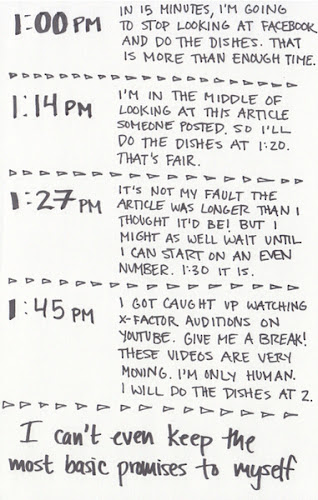 1:00 PM
IN 15 MINUTES, I'M GOING
TO STOP LOOKING AT FACEBOOK
AND DO THE DISHES. THAT
IS MORE THAN ENOUGH TIME.
1:14 PM
I'M IN THE MIDDLE OF
LOOKING AT THIS ARTICLE
SOMEONE POSTED. SO I'LL
DO THE DISHES AT 1:20.
THAT'S FAIR.
1:27 PM
IT'S NOT MY FAULT THE
ARTICLE WAS LONGER THAN I
THOUGHT IT'D BE! BUT I
MIGHT AS WELL WAIT UNTIL
I CAN START ON AN EVEN
NUMBER. 1:30 IT IS.
1:45 PM
I GOT CAUGHT UP WATCHING
X-FACTOR AUDITIONS ON
YOUTUBE. GIVE ME A BREAK!
THESE VIDEOS ARE VERY
MOVING. I'M ONLY HUMAN.
I WILL DO THE DISHES AT 2.
I can't even keep the
most basic promises to myself